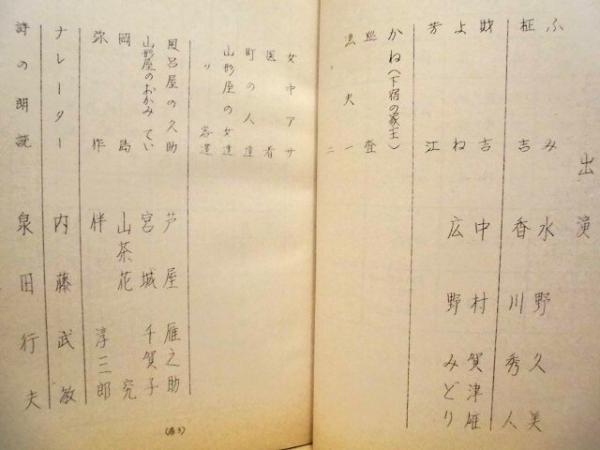 出演
ふみ 水野久美
柾吉 香川秀人
財吉 中村賀津雄
よね 広野みどり
芳江
かね(下宿の家主)
熊登
黒犬一
〃二
女中アサ
医者
町の人達
山形屋の女達
〃客達
風呂屋の久助 芦屋雁之助
山形屋のおかみてい 宮城千賀子
岡島 山茶花究
弥作 伴淳三郎
ナレーター 内藤武敏
詩の朗読 泉田行夫
(通3)